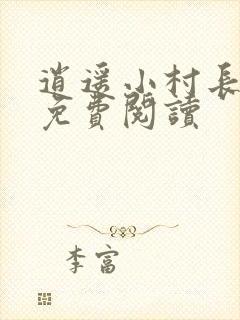 逍遥小村長
免費閱讀
李富